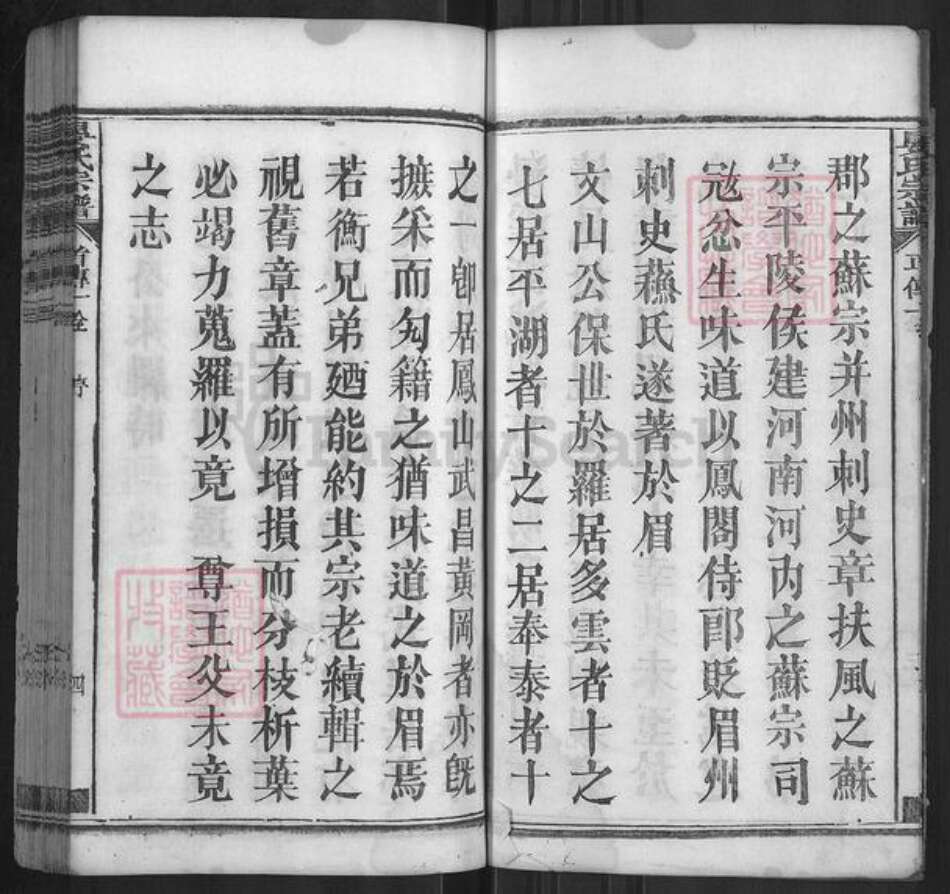 郡之蘇宗并州刺史章扶風之蘇
宗平陵侯建河南河內之蘇宗司
寇忿生味道以鳳閣侍郎貶眉州
刺史蘓氏遂著於眉
文山公保世於羅居多雲者十之
七居平湖者十之二居奉泰者十
之一卽居鳳山武昌黃岡者亦旣
摭采而勼籍之猶味道之於眉焉
若衡兄弟廼能約其宗老續輯之
視舊章蓋有所增損而分枝析葉
必竭力蒐羅以竟 尊王父未竟
之志
氏宗譜
序
四
FamilySearch